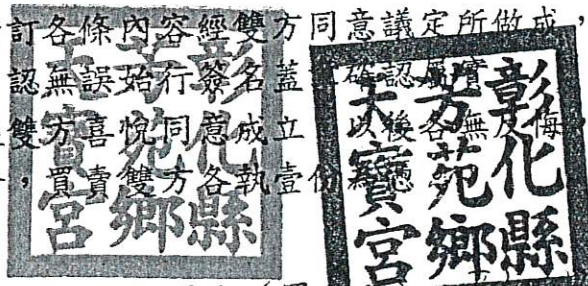 訂各條內容經雙方同意議定所做成，
認無誤始行簽名蓋確認屬實
雙方喜悅同意成立，以後各無反悔
，買賣雙方各執壹份為憑
彰化縣
芳苑鄉
天寶宮
彰化縣
芳苑鄉
天寶宮